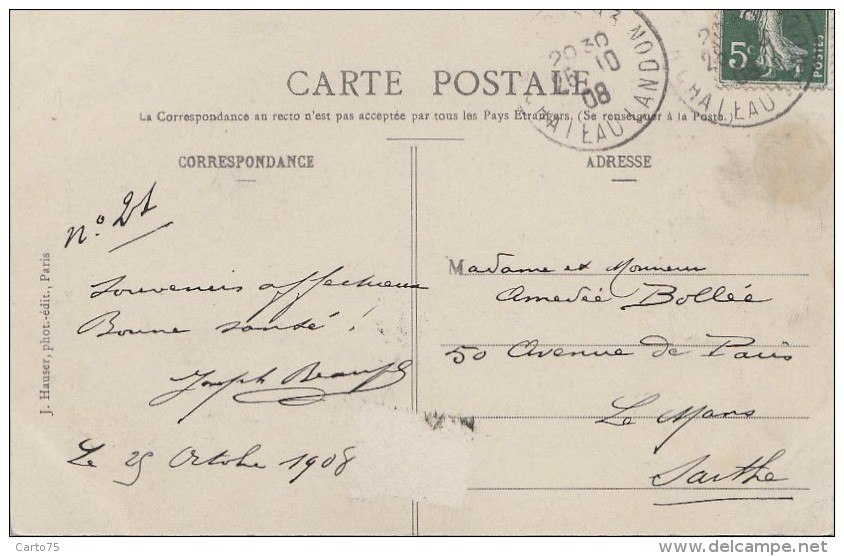 CARTE POSTALE
La Correspondance au recto n'est pas acceptée par tous les Pays Étrangers. (Se renseigner à la Poste.)
20 30
25 10
08
CHATEAU LANDON
5c
POSTES
CORRESPONDANCE
ADRESSE
N° 21
Souvenirs affectueux
Bonne santé !
Joseph
Le 25 Octobre 1908
Madame et Monsieur
Amedée Bollée
50 Avenue de Paris
Le Mans
Sarthe
J. Hauser, phot.-édit., Paris
Carto75
www.delcampe.net